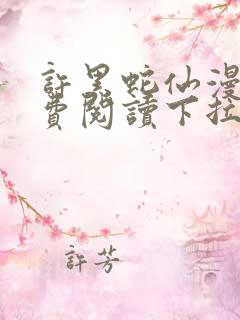 許黑蛇仙漫
費閱讀下拉
許芳